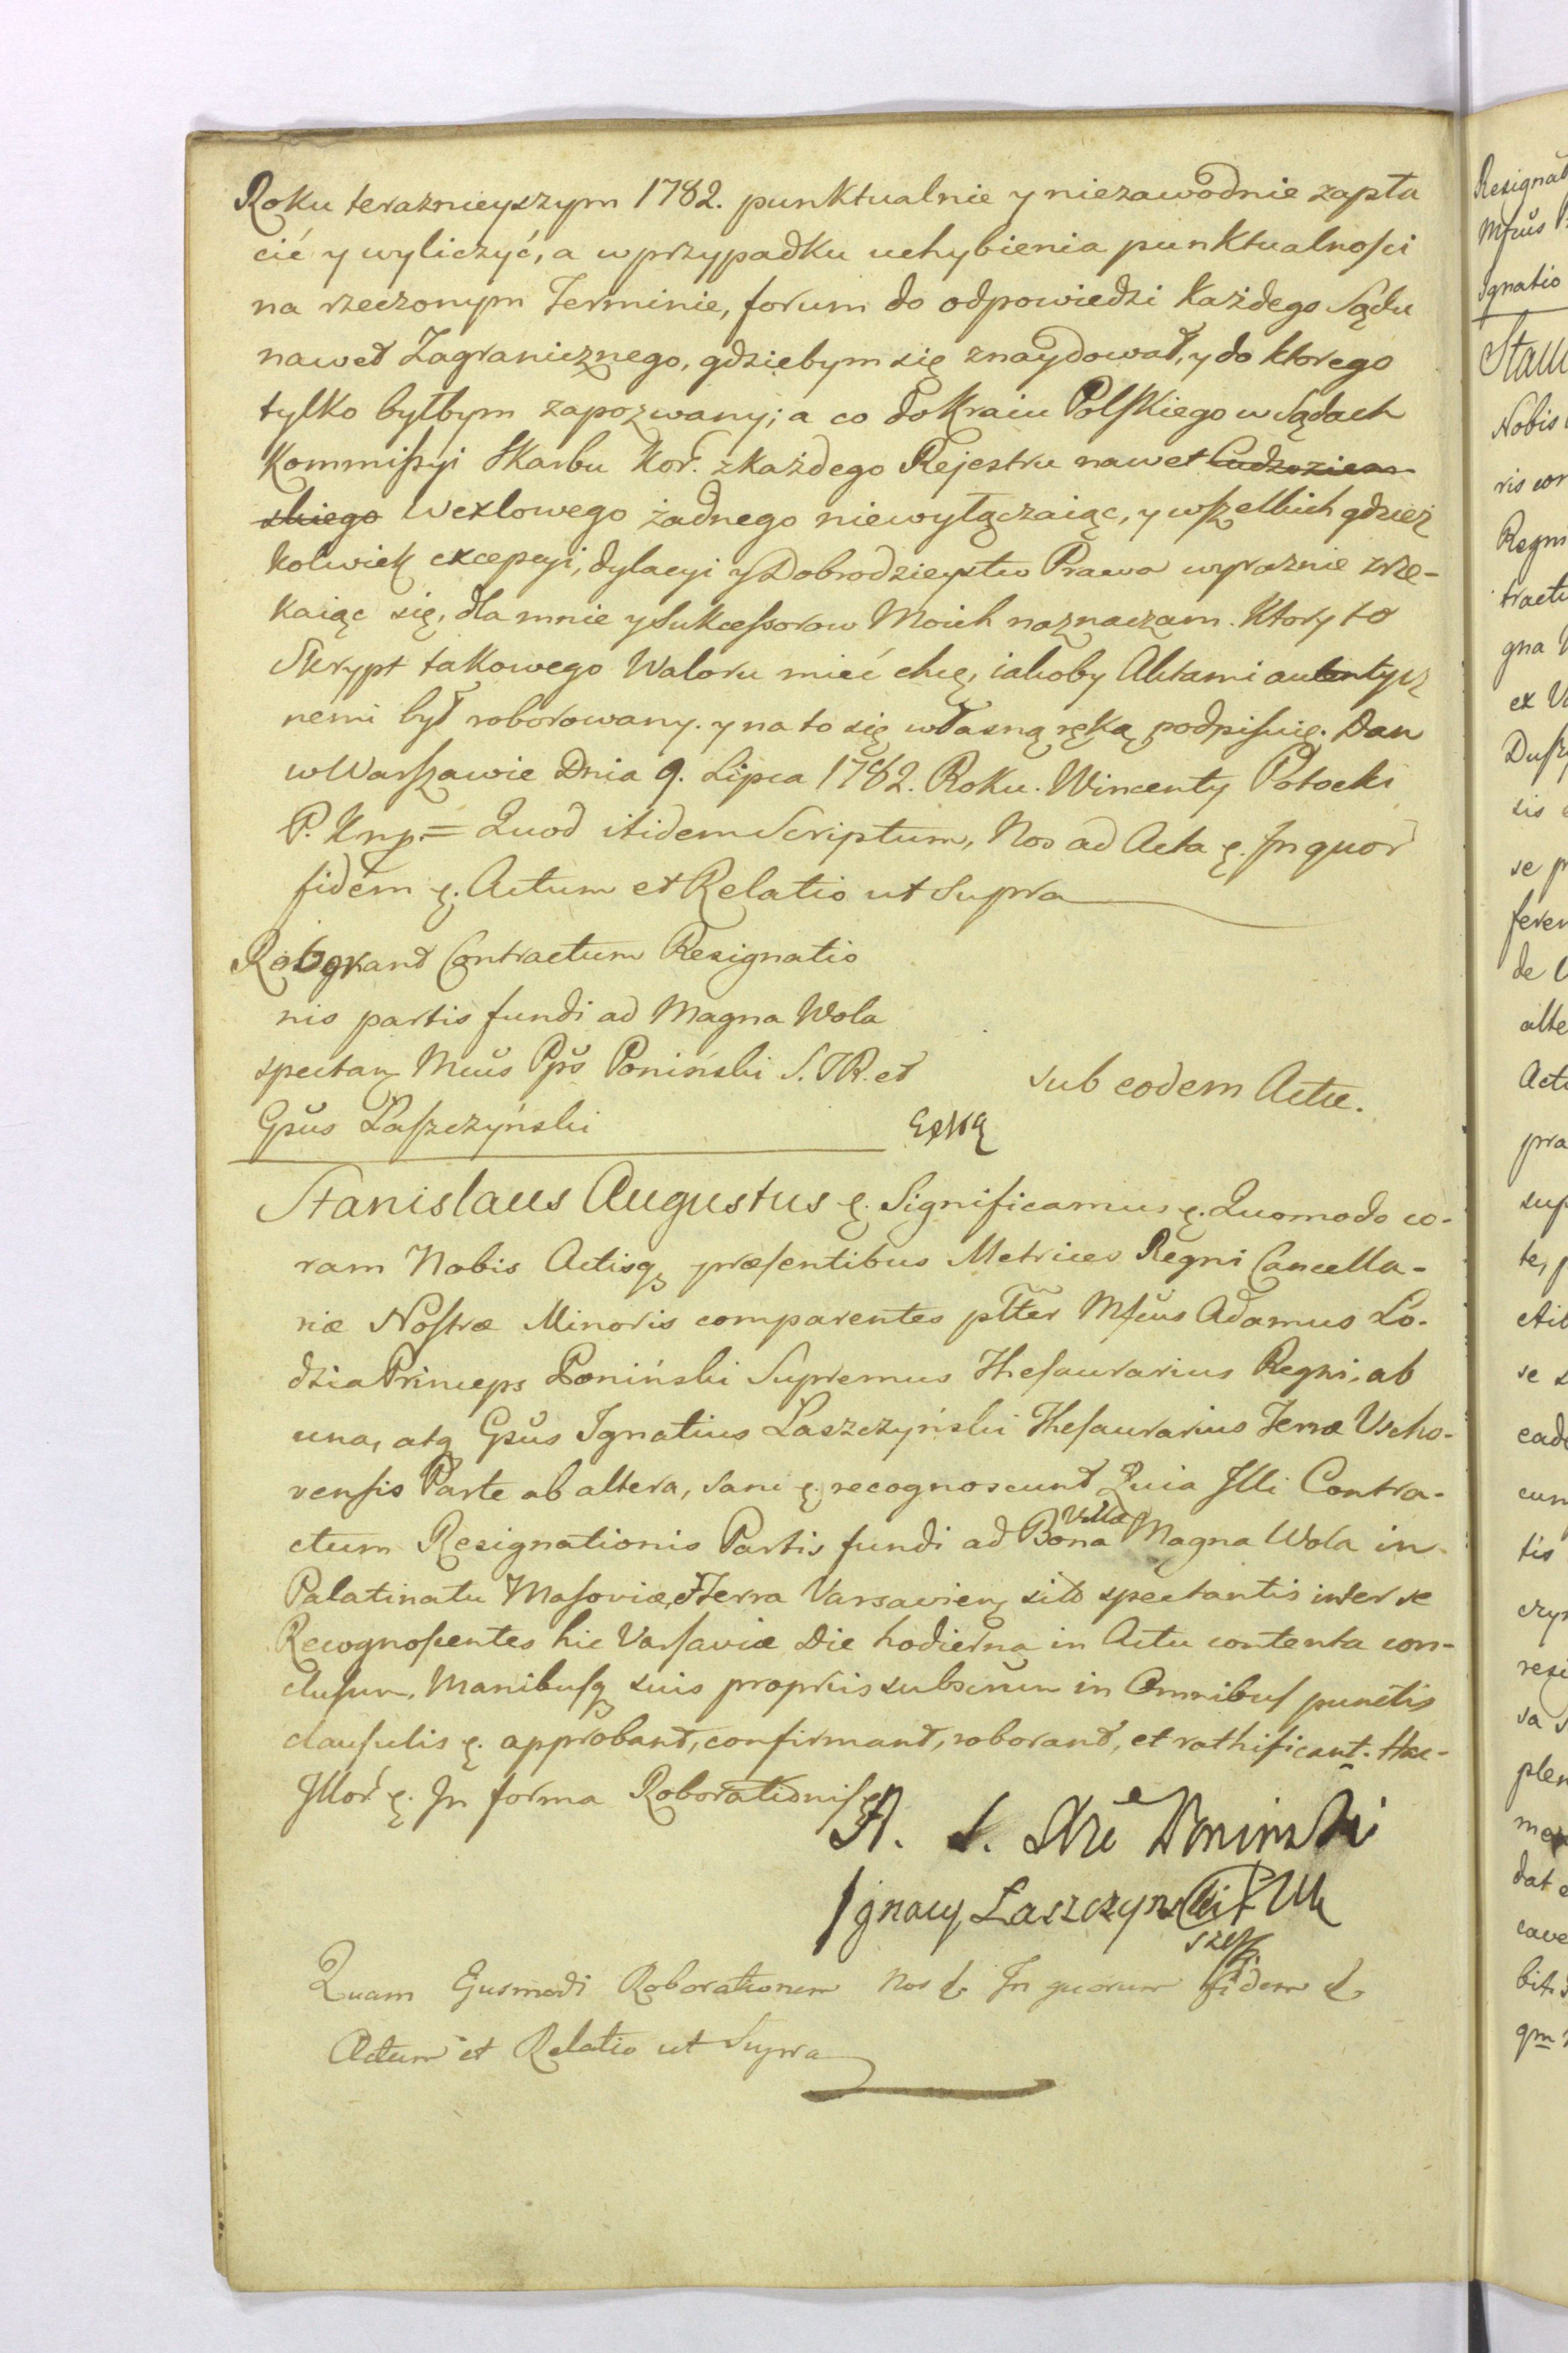 Roku teraznieyszym 1782. punktualnie y niezawodnie zapła
cić y wyliczyć, a w przypadku uchybienia punktualnosci
na rzeczonym Terminie, forum do odpowiedzi każdego Sądu
nawet Zagranicznego, gdziebym się znaydował, y do ktorego
tylko byłbym zapozwany; a co do Kraiu Polskiego w Sądach
Kommissyi Skarbu Kor. z każdego Rejestru nawet Cudzoziem
skiego Wexlowego żadnego niewyłączaiąc, y wszelkich gdzież
kolwiek excepcyi, dylacyi y Dobrodzieystw Prawa wyraznie zrze-
kaiąc się, dla mnie y Sukcessorow Moich naznaczam. Ktory to
Skrypt takowego Waloru mieć chcę, iakoby Aktami autentycz
nemi był roborowany. y na to się własną ręką podpisuię. Dan
w Warszawie Dnia 9. Lipca 1782. Roku. Wincenty Potocki
P. Knp = Quod itidem Scriptum, Nos ad Acta ę. In quor
fidem ę. Actum et Relatio ut Supra
Roborant Contractum Resignatio
nis partis fundi ad Magna Wola
spectan Mcus Pps Poniński S. T. R. et
Gsus Łaszczyński
sub eodem Actu.
Stanislaus Augustus ę. Significamus ę. Quomodo co-
ram Nobis Actisq præsentibus Metrices Regni Cancella-
riæ Nostræ Minoris comparentes plter Mfcus Adamus Ło-
dzia Princeps Poniński Supremus Thesaurarius Regni, ab
una, atq Gsus Ignatius Łaszczyński Thesaurarius Terræ Vscho-
vensis Parte ab altera, sani ę. recognoscunt Quia Illi Contra-
ctum Resignationis Partis fundi ad Bona Villæ Magna Wola in
Palatinatu Masoviæ, Terra Varsavien sit spectantis inter se
Recognoscentes hic Varsaviæ Die hodierna in Actu contenta con-
clusum, Manibusq suis propriis subscrum in Omnibus punctis
clausulis ę. approbant, confirmant, roborant, et rathificant. Hac
Illor ę. In forma Roborationis ę.
A. Poninski
Ignacy Łaszczynski
Quam Ejusmodi Roborationem Nos &. In quorum fidem &
Actum et Relatio ut Supra
Resignat
Mfcus
Ignatio
Stani
Nobis
ris cor
Regni
tractu
gna
ex
sis
se
feren
de
alte
Actu
pra
sup
te,
se
cade
cun
tis
sa
plen
dat
cave
bit
qm